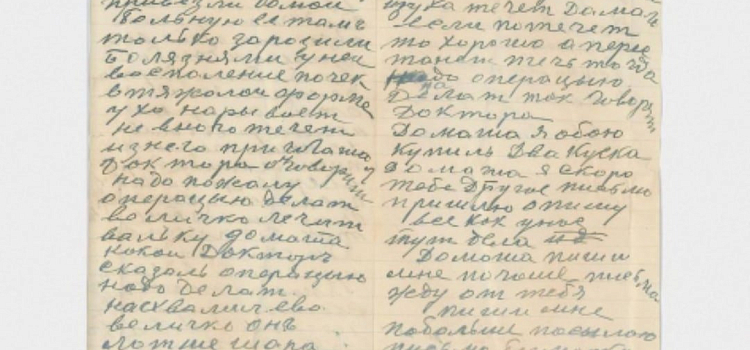 привезли домой
больную ее тамъ
только заразили
болязнями у ней
восполение почек
в тяжолой форме
ухо нарывает
не много течет
из него приглашаю
доктора он говорит
надо пожалу
операцыю делат
величко лечит
вальку домаша
какой докторъ
сказалъ операцыю
надо делат
нас хвалил ево
величко онъ
уха течет Домаш
если потечет
то хорошо а перес
танет тичь тогда
надо операцыю
делат так говорят
доктора
Домаша я обою
купиль два куска
домаша я скоро
тебе другое писмо
пришлю опишу
все как у нас
тут дела
Домаша пиши
мне почаше писма
жду от тебя
пиши мне
побольши посылаю